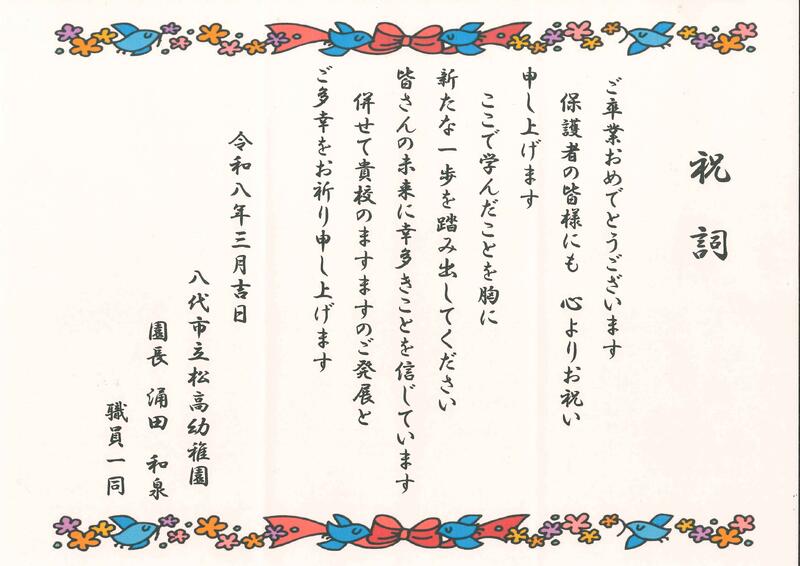 祝詞
ご卒業おめでとうございます
保護者の皆様にも 心よりお祝い
申し上げます
ここで学んだことを胸に
新たな一歩を踏み出してください
皆さんの未来に幸多きことを信じています
併せて貴校のますますのご発展と
ご多幸をお祈り申し上げます
令和八年三月吉日
八代市立松高幼稚園
園長 涌田 和泉
職員一同